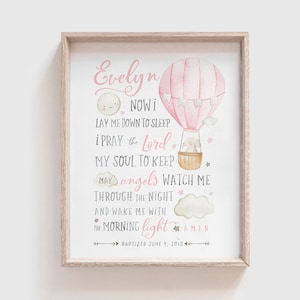 Evelyn
NOW I
LAY ME DOWN TO SLEEP
I PRAY the Lord
MY SOUL TO KEEP
MAY angels WATCH ME
THROUGH THE NIGHT
AND WAKE ME WITH
THE MORNING light AMEN
BAPTIZED JUNE 4, 2010